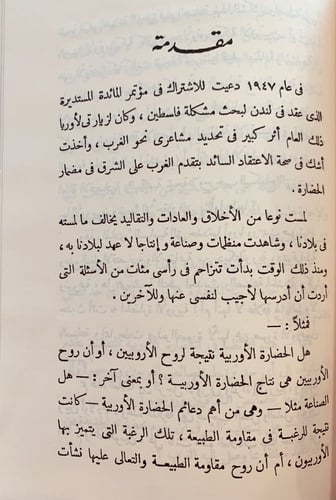 مقدمة
فى عام ١٩٤٧ دعيت للاشتراك فى مؤتمر المائدة المستديرة
الذى عقد فى لندن لبحث مشكلة فلسطين ، وكان لزيارتى لأوربا
ذلك العام أثر كبير فى تحديد مشاعرى نحو الغرب ، وأخذت
أشك فى صحة الاعتقاد السائد بتقدم الغرب على الشرق فى مضمار
الحضارة .
لمست نوعا من الأخلاق والعادات والتقاليد يخالف ما لمسته
فى بلادنا ، وشاهدت منظمات وصناعة وإنتاجا لا عهد لبلادنا به ،
ومنذ ذلك الوقت بدأت تتزاحم فى رأسى مئات من الأسئلة التى
أردت أن أدرسها لأجيب لنفسى عنها وللآخرين .
فمثلا : —
هل الحضارة الأوربية نتيجة لروح الأروبيين ، أو أن روح
الأوربيين هى نتاج الحضارة الأوربية ؟ أو بمعنى آخر : — هل
الصناعة مثلا — وهى من أهم دعائم الحضارة الأوربية — كانت
نتيجة للرغبة فى مقاومة الطبيعة ، تلك الرغبة التى يتميز بها
الأوربيون ، أم أن روح مقاومة الطبيعة والتعالى عليها نشأت